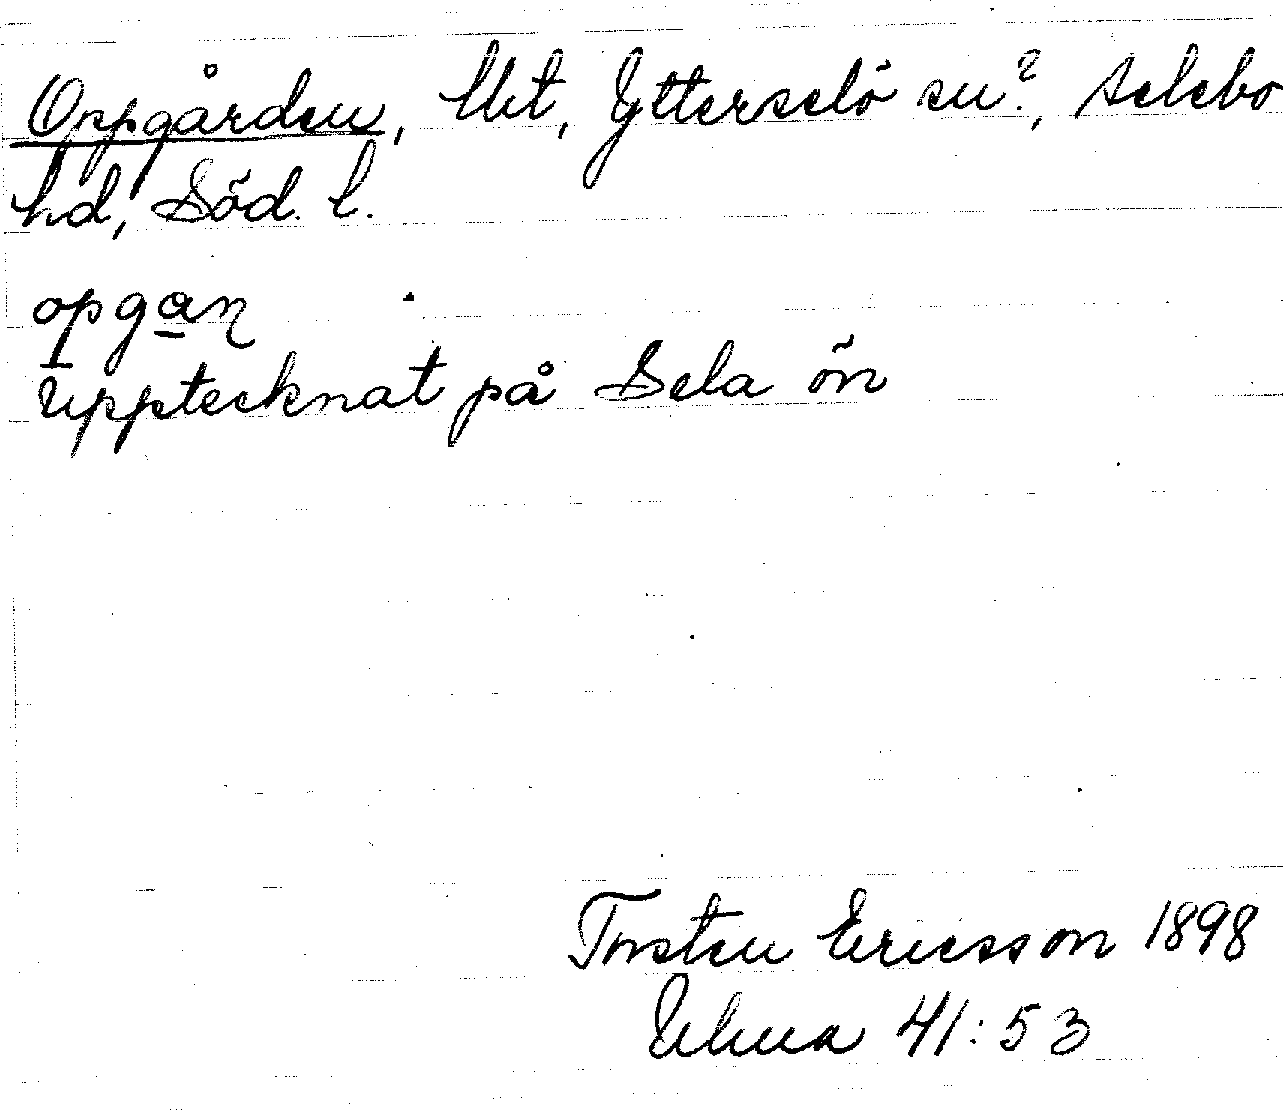 Oppgården, Ytterselö sn?, Selebo
hd, Söd. l.
opgan
Upptecknat på Sela ön
Torsten Ericsson 1898
Ulma 41:53